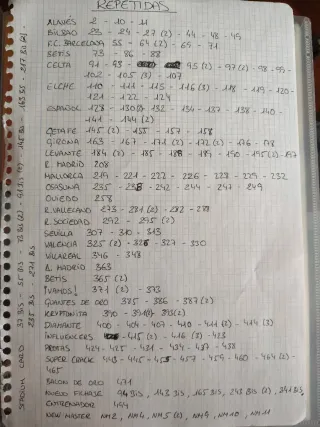 REPETIDAS
ALAVÉS 2 - 10 - 11
BILBAO 23 - 24 - 27 (2) - 44 - 48 - 49
F.C. BARCELONA 55 - 64 (2) - 69 - 71
BETIS 73 - 86 - 88
CELTA 91 - 93 - 95 (2) - 97 (2) - 98 - 99 -
102 - 105 (3) - 107
ELCHE 110 - 111 - 115 - 116 (3) - 118 - 119 - 120 -
121 - 122 - 124
ESPAÑOL 128 - 130 - 132 - 134 - 137 - 138 - 140 -
141 - 144 (2)
GETAFE 145 (2) - 155 - 157 - 158
GIRONA 163 - 167 - 171 (2) - 172 (2) - 176 - 178
LEVANTE 184 (2) - 185 - 189 - 190 - 195 (2) - 197
R. MADRID 208
MALLORCA 219 - 221 - 222 - 226 - 228 - 229 - 232
OSASUNA 235 - 238 - 242 - 244 - 247 - 249
OVIEDO 258
R. VALLECANO 273 - 281 (2) - 282 - 288
R. SOCIEDAD 292 - 295 (2)
SEVILLA 307 - 310 - 313
VALENCIA 325 (2) - 326 - 327 - 330
VILAREAL 346 - 348
A. MADRID 363
BETIS 365 (2)
¡VAMOS! 371 (2) - 373
GUANTES DE ORO 375 - 386 - 387 (2)
KRYPTONITA 390 - 393 (2)
DIAMANTE 400 - 404 - 407 - 410 - 411 (2) - 414 (3)
INFLUENCERS 415 (2) - 416 (3) - 423
PROTAS 424 - 425 - 431 - 434 - 437 - 438
SUPER CRACK 443 - 445 - 457 - 459 - 460 - 464 (2) -
465
BALON DE ORO 471
NUEVO FICHAJE 94 BIS, 143 BIS, 165 BIS, 243 BIS (2), 341 BIS
ENTRENADOR 494
NEW MASTER NM2, NM4, NM5 (2), NM9, NM10, NM11
STADIUM CARD 37 BIS - 55 BIS - 73 BIS (2) - 91 BIS - 145 BIS - 163 BIS - 217 BIS (2) -
235 BIS - 271 BIS